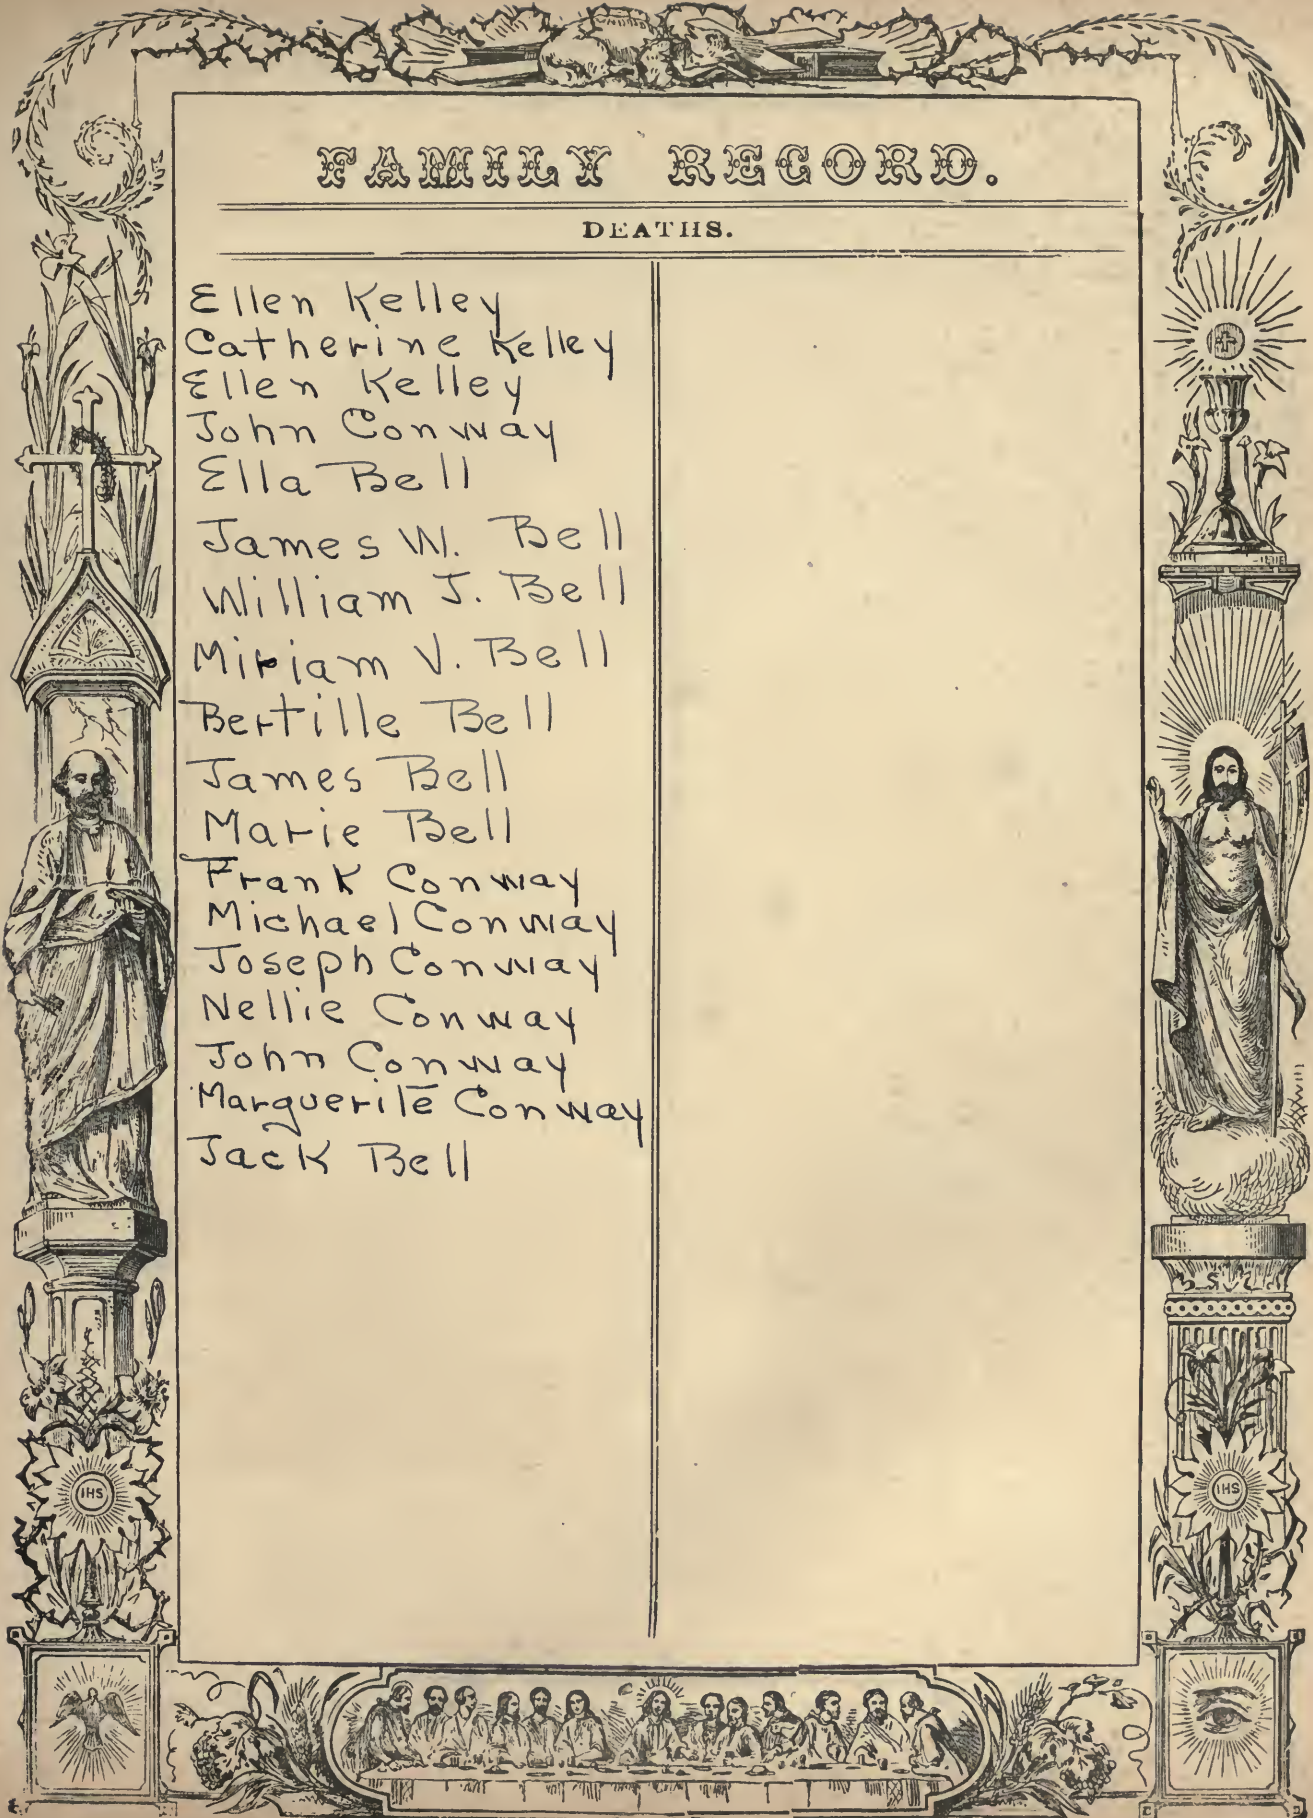 FAMILY RECORD.
DEATHS.
Ellen Kelley
Catherine Kelley
Ellen Kelley
John Conway
Ella Bell
James W. Bell
William J. Bell
Miriam V. Bell
Bertille Bell
James Bell
Marie Bell
Frank Conway
Michael Conway
Joseph Conway
Nellie Conway
John Conway
Marguerite Conway
Jack Bell
IHS
IHS